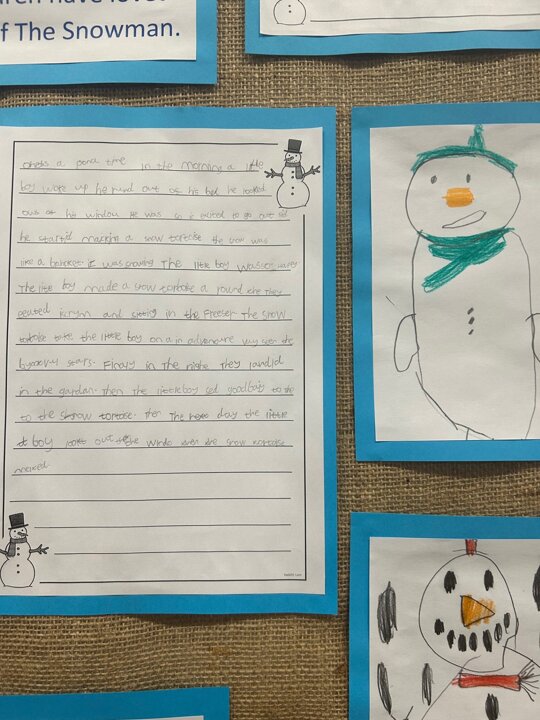 dren have love
f The Snowman.
a time in the morning a little
boy woke up he jumd out of his bed he looked
out of his window He was so exited to go out sid
he startid macking a snow tortoise the was
like a blancket. it was snowing The little boy
The little boy made a snow tortoise a round the They
eeated and sitting in the Freeser The snow
tortoise take the little boy on a in advencure vay seen the
stars. Finaly in The nighe They landid
in the gardan. Then The littleboy sed goodbaiy to the
to the snow tortoise. Then The day the little
boy lookt out the windo the snow tortoise
melted.